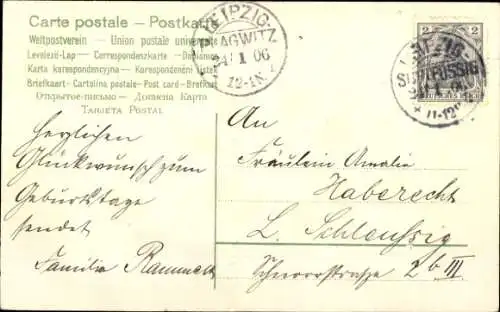 Carte postale – Postkarte
Weltpostverein – Union postale universelle
Levelező-Lap – Correspondenzkarte – Dopisnice
Karta korespondencyjna – Korespondenční lístek
Briefkaart – Cartolina postale – Post card – Brefkort
Открытое письмо – Дописна Карта
Tarjeta Postal
LEIPZIG-
PLAGWITZ
24/ 1 06
12-1N.
2 2
LEIPZIG
11-12
Herzlichen
Glückwunsch zum
Geburtstage
sendet
Familie
An
Fräulein Amalie
Haberecht
L. Schleussig
Schnorrstraße 2b III